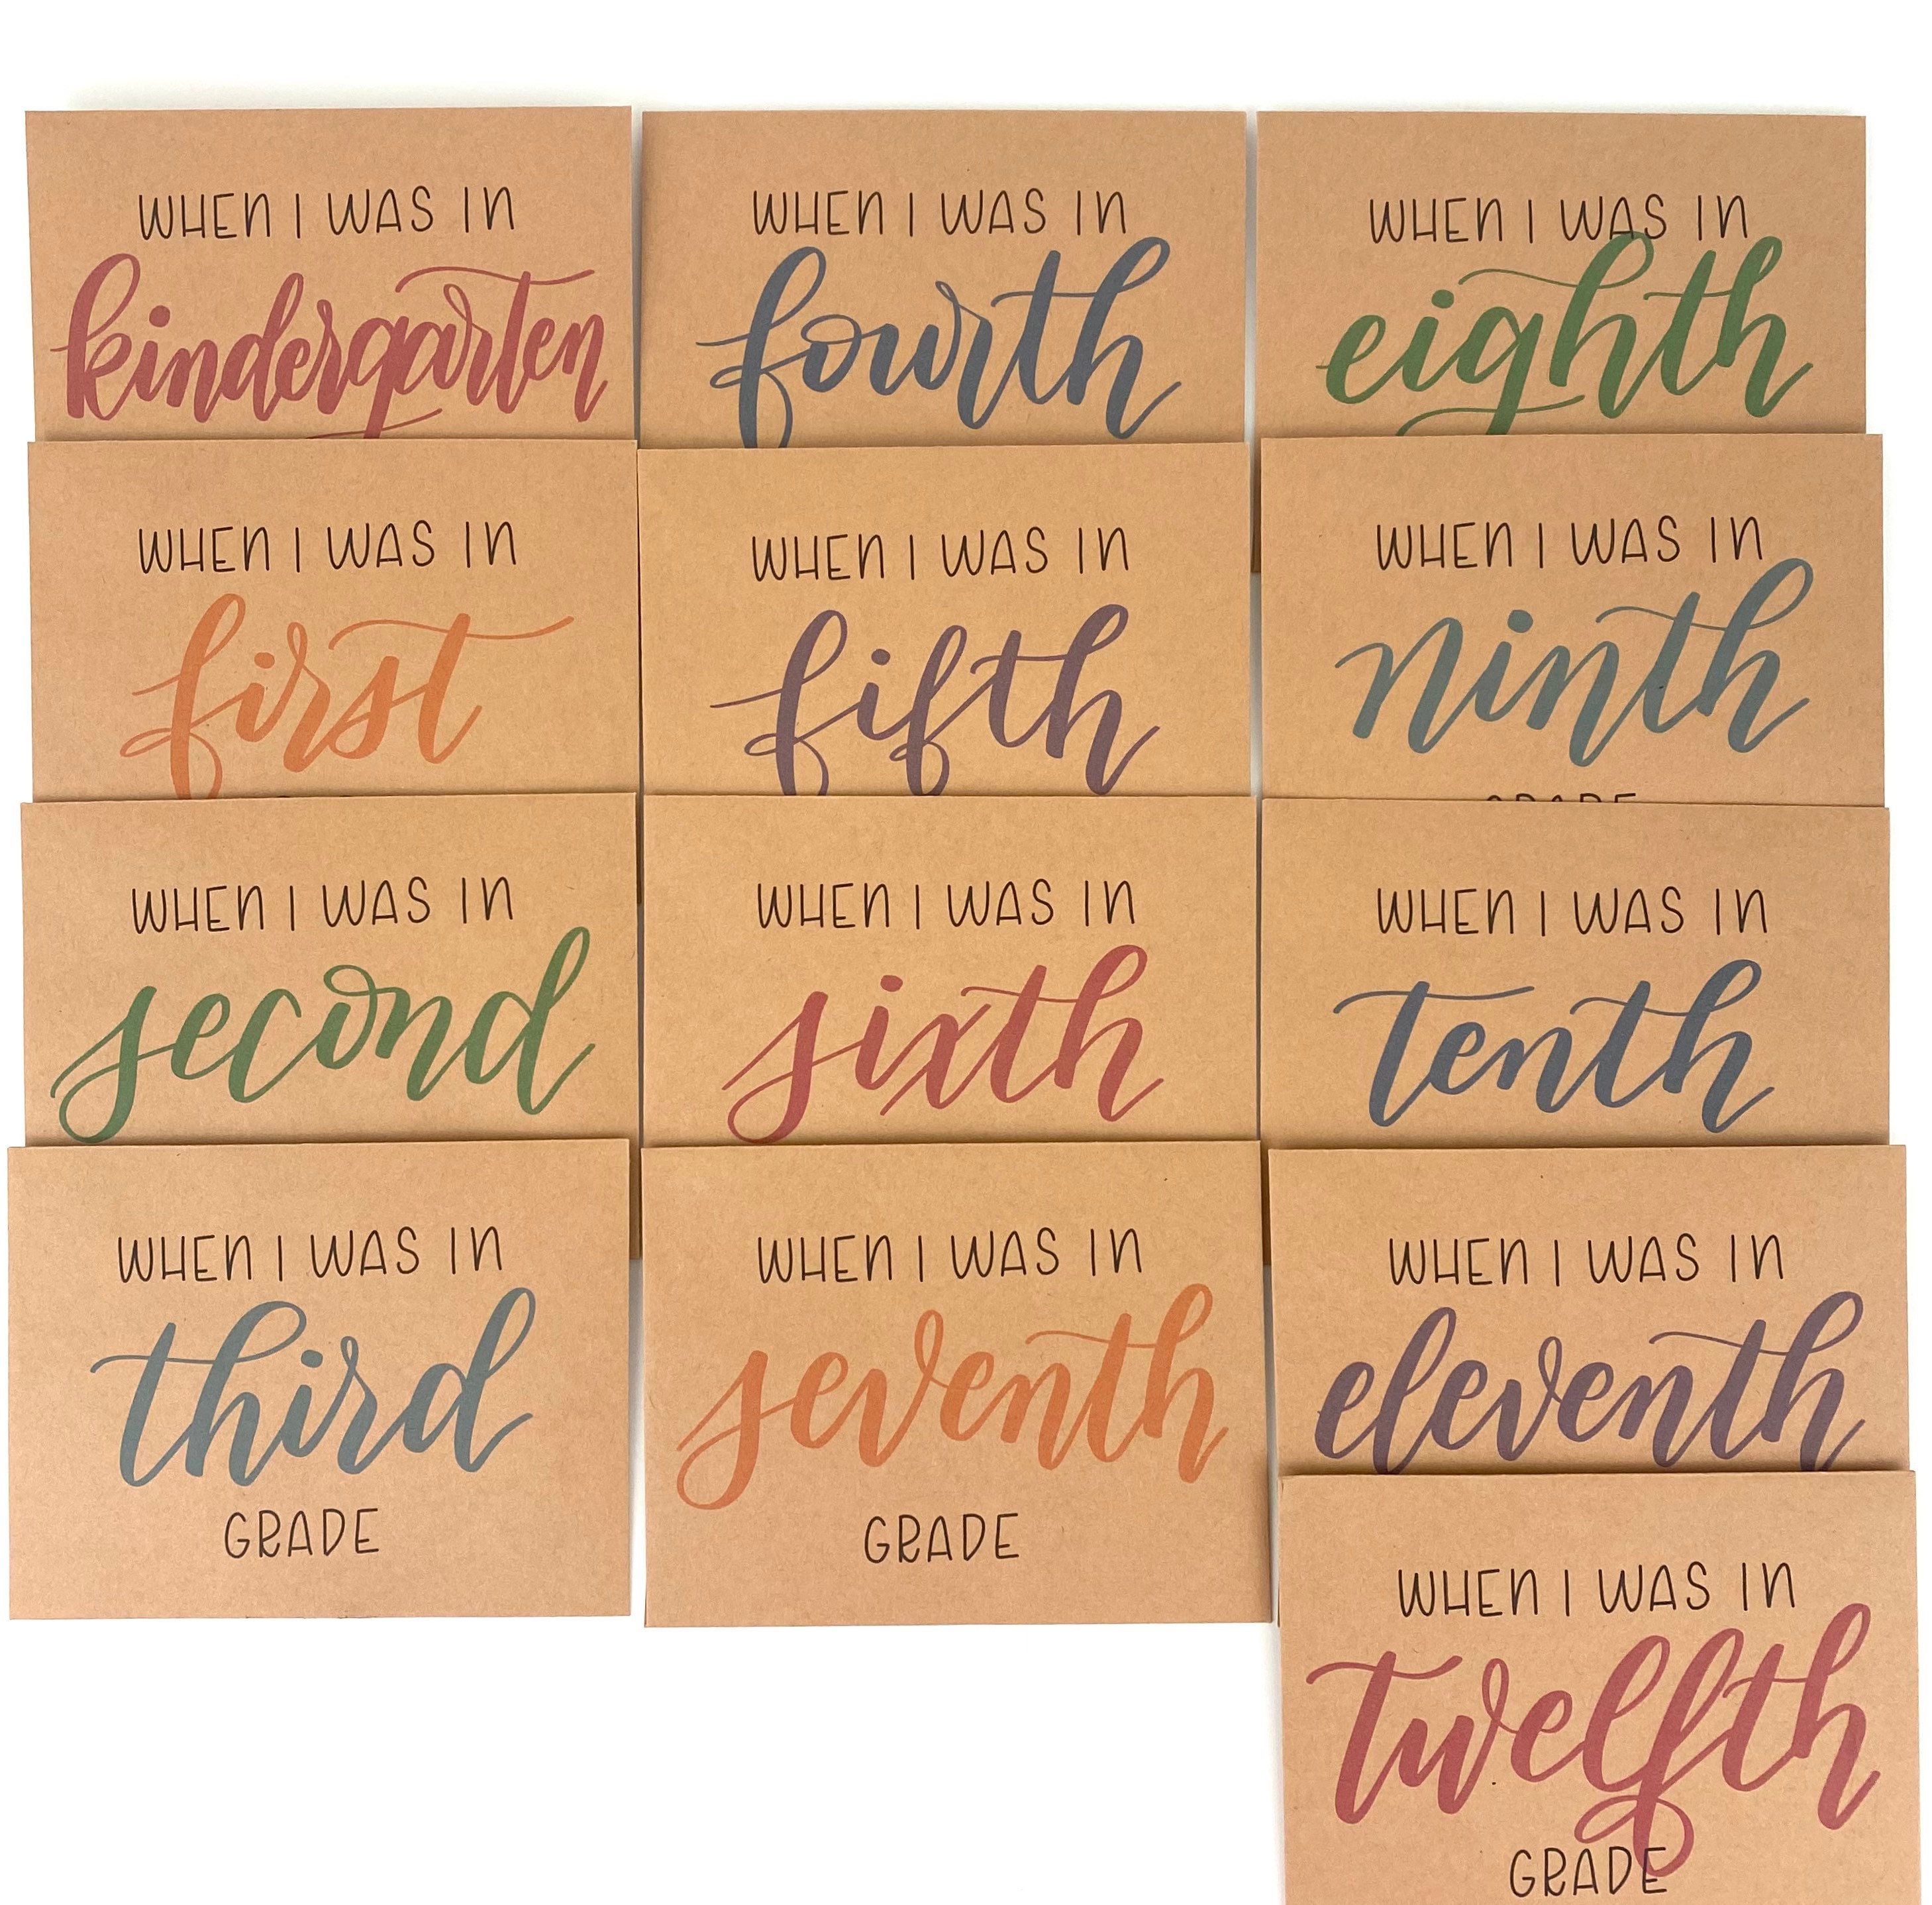 WHEN I WAS IN
kindergarten
WHEN I WAS IN
first
WHEN I WAS IN
second
WHEN I WAS IN
third
GRADE
WHEN I WAS IN
fourth
WHEN I WAS IN
fifth
WHEN I WAS IN
sixth
WHEN I WAS IN
seventh
GRADE
WHEN I WAS IN
eighth
WHEN I WAS IN
ninth
GRADE
WHEN I WAS IN
tenth
WHEN I WAS IN
eleventh
WHEN I WAS IN
twelfth
GRADE